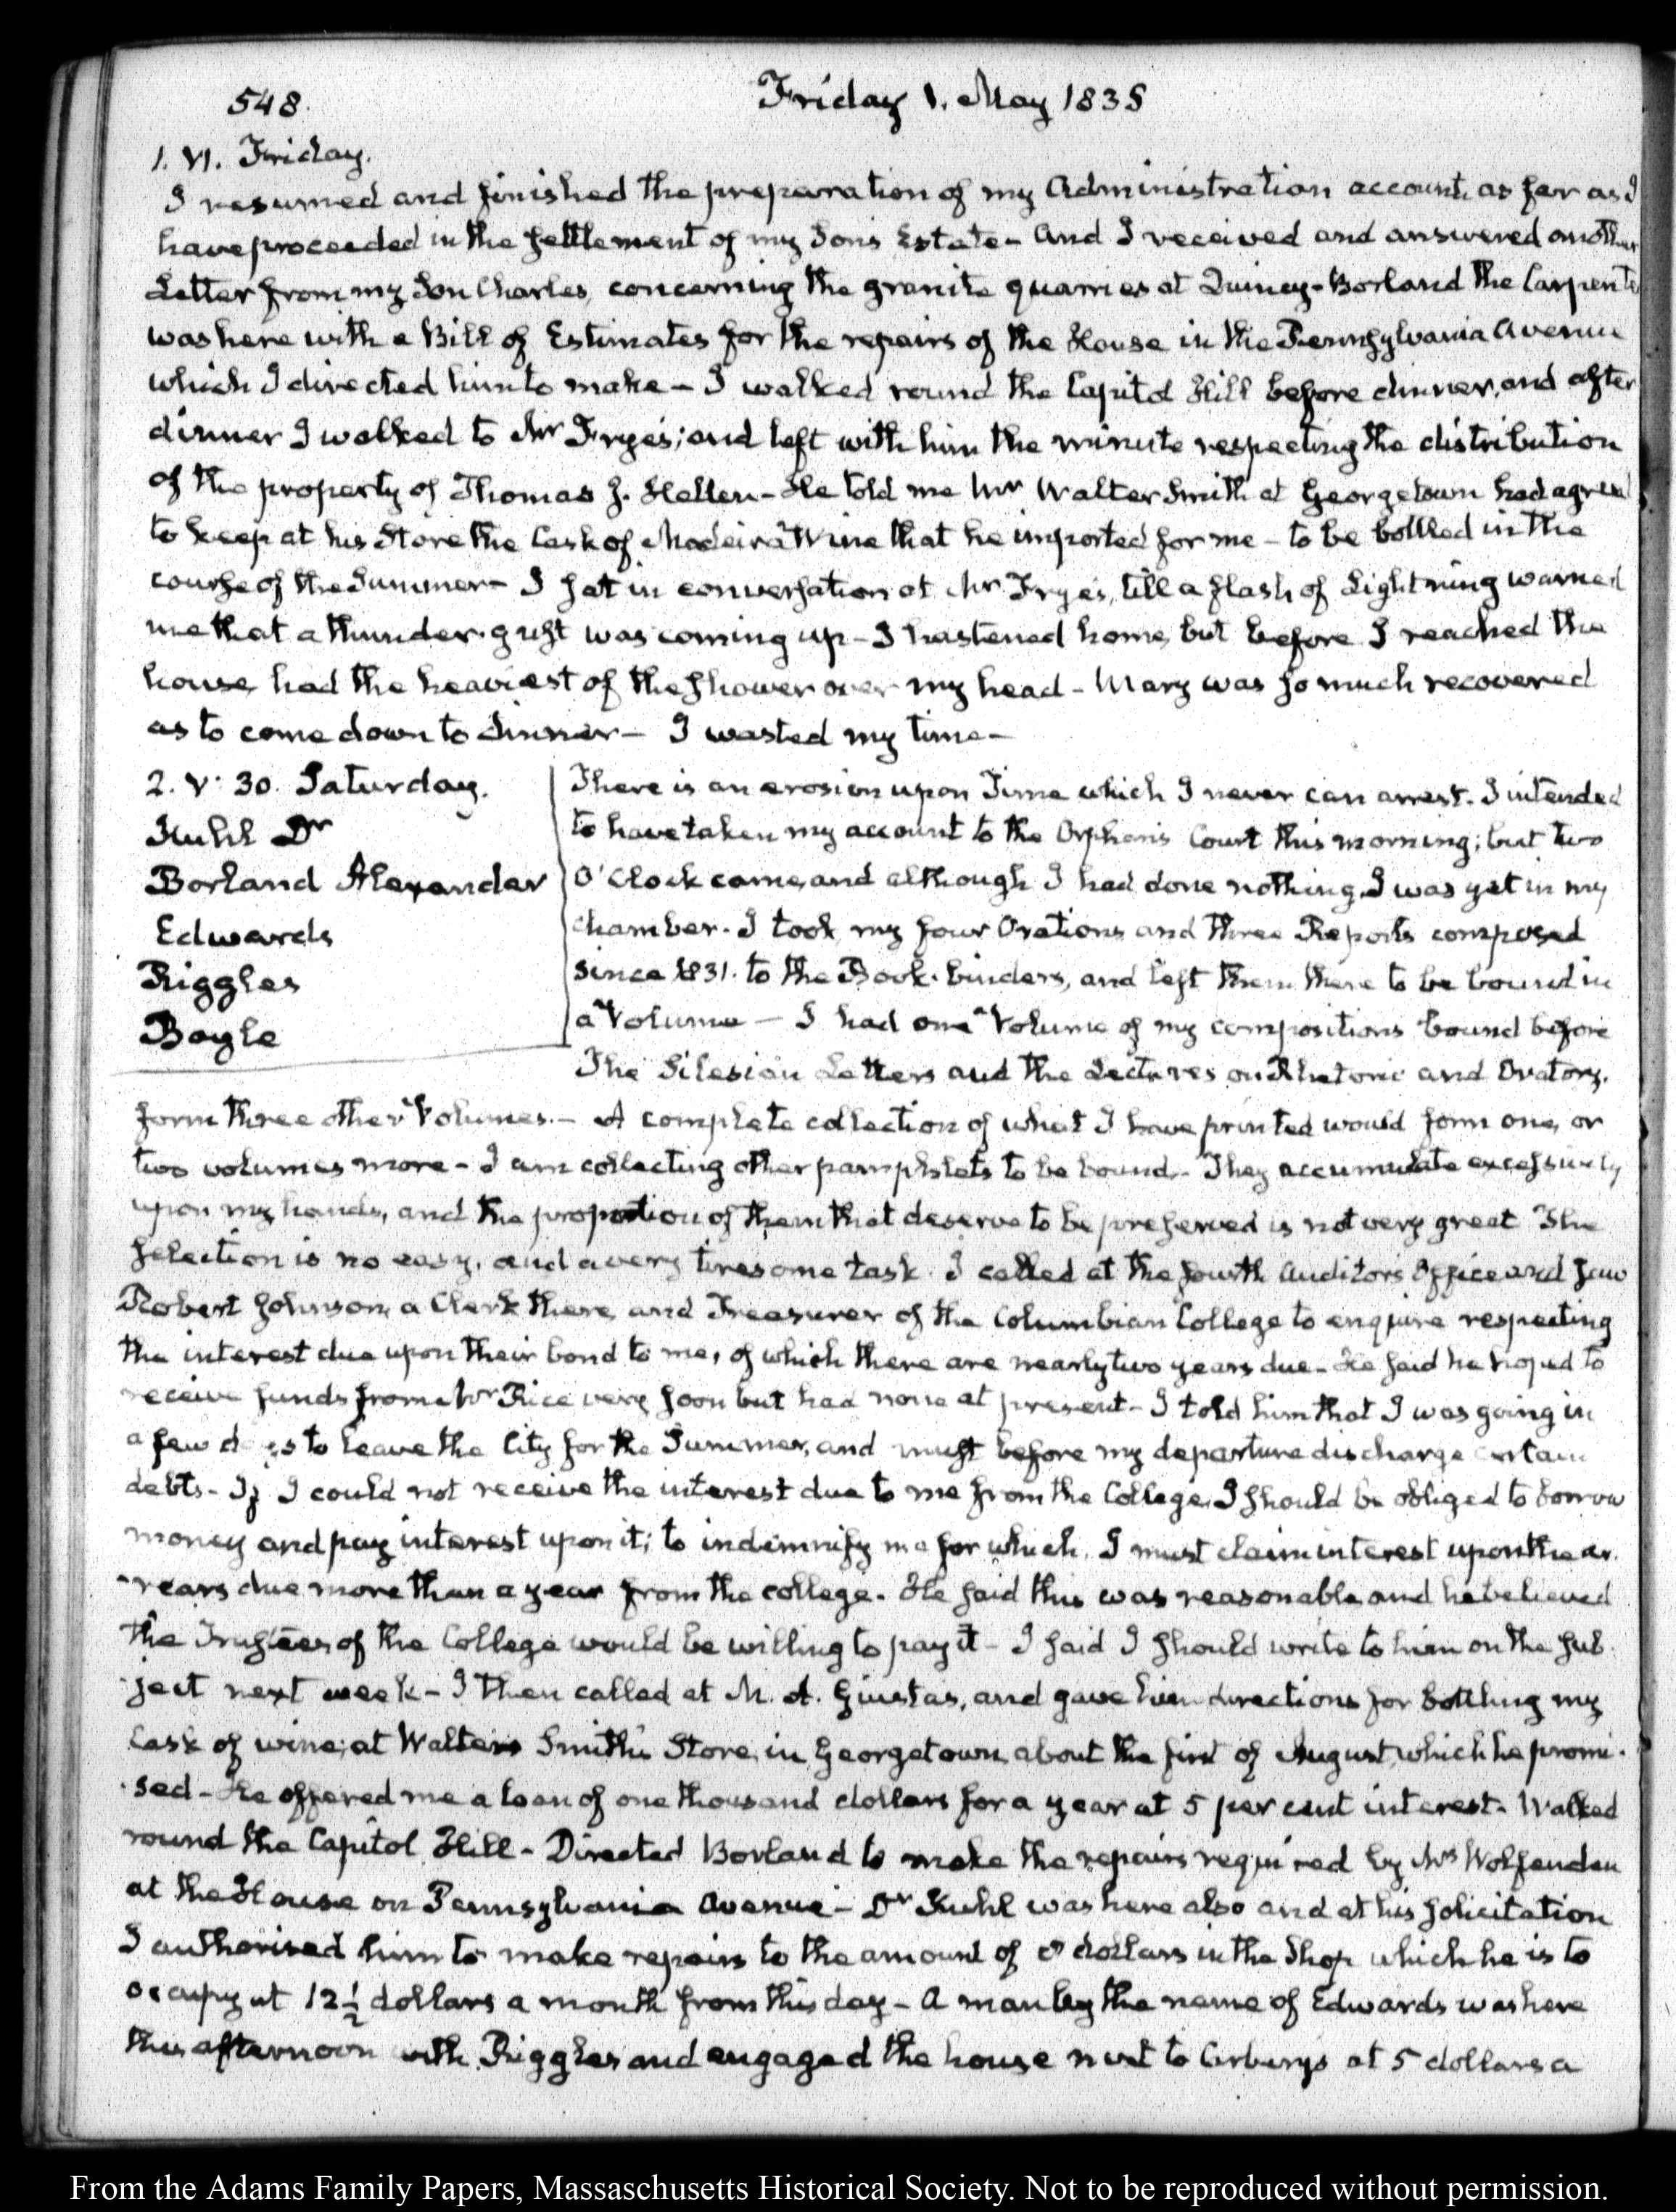 548.
Friday 1. May 1835
1. VI. Friday.
I resumed and finished the preparation of my Administration account, as far as I
have proceeded in the settlement of my Son's Estate - And I received and answered another
Letter from my Son Charles, concerning the granite quarries at Quincy - Borland the Carpenter
was here with a Bill of Estimates for the repairs of the House in the Pennsylvania Avenue
which I directed him to make - I walked round the Capitol Hill before dinner, and after
dinner I walked to Mr Frye's; and left with him the minute respecting the distribution
of the property of Thomas J. Hellen - He told me Mr Walter Smith at Georgetown had agreed
to keep at his Store the Cask of Madeira Wine that he imported for me - to be bottled in the
course of the Summer - I sat in conversation at Mr Frye's, till a flash of Lightning warned
me that a thunder-gust was coming up - I hastened home, but before I reached the
house, had the heaviest of the shower over my head - Mary was so much recovered
as to come down to dinner - I wasted my time -
2. V: 30. Saturday.
Kuhl Dr
Borland Alexander
Edwards
Riggles
Boyle
There is an erosion upon Time which I never can arrest. I intended
to have taken my account to the Orphan's Court this morning; but two
O'Clock came, and although I had done nothing, I was yet in my
chamber. I took my four Orations and three Reports composed
since 1831. to the Book-binders, and left them there to be bound in
a Volume - I had one Volume of my compositions bound before
The Silesian Letters and the Lectures on Rhetoric and Oratory,
form three other Volumes. - A complete collection of what I have printed would form one, or
two volumes more - I am collecting other pamphlets to be bound. - They accumulate excessively
upon my hands, and the proportion of them that deserve to be preserved is not very great The
selection is no easy, and a very tiresome task. I called at the fourth Auditor's Office and saw
Robert Johnson, a Clerk there, and Treasurer of the Columbian College to enquire respecting
the interest due upon their bond to me, of which there are nearly two years due - He said he hoped to
receive funds from Mr Rice very soon but had none at present - I told him that I was going in
a few days to leave the City for the Summer, and must before my departure discharge certain
debts - If I could not receive the interest due to me from the College, I should be obliged to borrow
money and pay interest upon it; to indemnify me for which, I must claim interest upon the ar-
-rears due more than a year from the college. He said this was reasonable and he believed
the Trustees of the College would be willing to pay it - I said I should write to him on the sub-
-ject next week - I then called at M. A. Giusta's, and gave him directions for bottling my
Cask of wine, at Walter Smith's Store, in Georgetown, about the first of August, which he promi-
-sed - He offered me a loan of one thousand dollars for a year at 5 per cent interest - Walked
round the Capitol Hill - Directed Borland to make the repairs required by Mrs Wolfenden
at the House on Pennsylvania Avenue - Dr Kuhl was here also and at his solicitation
I authorised him to make repairs to the amount of dollars in the Shop which he is to
occupy at 12½ dollars a month from this day - A man by the name of Edwards was here
this afternoon with Riggles and engaged the house next to at 5 dollars a
From the Adams Family Papers, Massachusetts Historical Society. Not to be reproduced without permission.